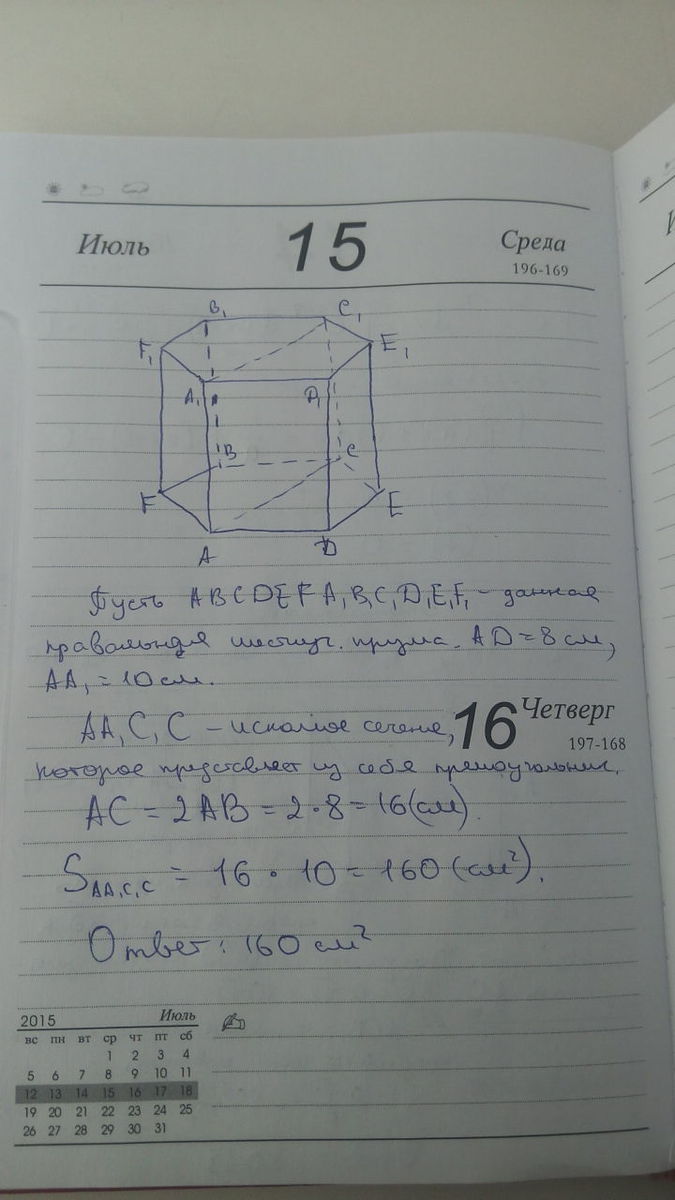 Июль 15 Среда
196-169
B₁ C₁
F₁ E₁
A₁ D₁
B C
F E
A D
Пусть ABCDEFA₁B₁C₁D₁E₁F₁ - данная
правильная шестиуг. призма. AD = 8 см,
AA₁ = 10 см.
AA₁C₁C - искомое сечение,
16 Четверг
197-168
которое представляет из себя прямоугольник.
AC = 2AB = 2·8 = 16(см).
S AA₁C₁C = 16 · 10 = 160 (см²).
Ответ: 160 см²
2015 Июль
вс пн вт ср чт пт сб
1 2 3 4
5 6 7 8 9 10 11
12 13 14 15 16 17 18
19 20 21 22 23 24 25
26 27 28 29 30 31